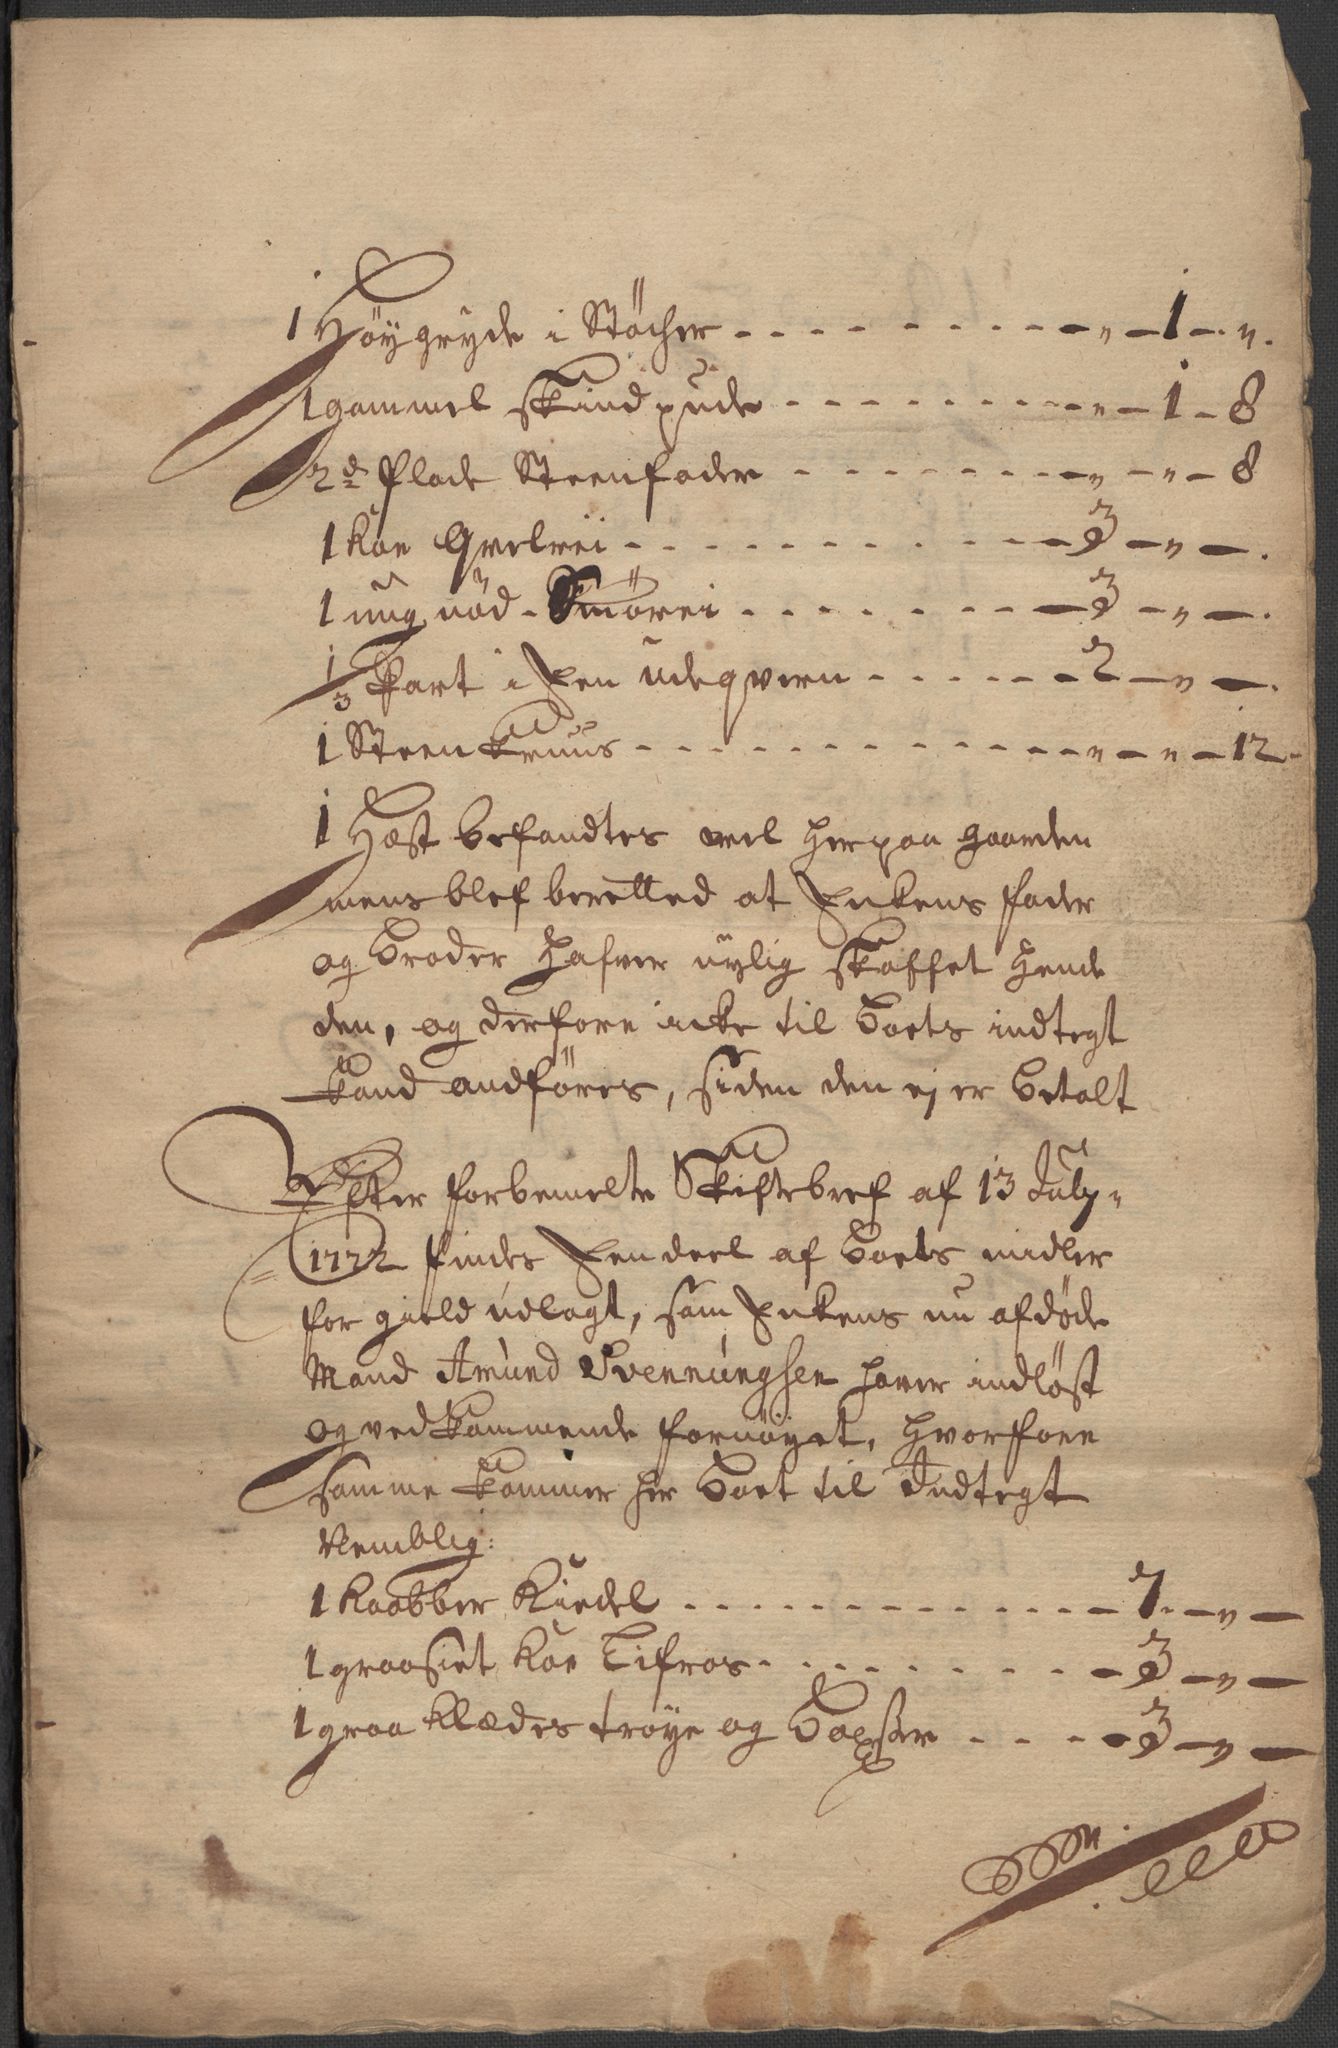 1 Höygryde i Stöcher - - - „ - 1 - „.
1 gammel Skindpude - - - „ - 1 - 8
2de flade Steenfader - - - „ - „ - 8
1 Koe Qvelrei - - - 3 - „ - .
1 ung nöd - Smörei - - - 3 - „ - .
1/3 Part i Een udeqvern - - - 2 - „ - .
1 Steen Kruus - - - „ - „ - 12 -
1 Hæst befandtes vel her paa gaarden
mens blef berelted at Enkens fader
og broder hafver nylig skaffet hende
den, og derfore icke til boets indtegt
kand andföres, siden den ej er betalt
Efter forbemelte Skiftebref af 13 July
1722 findes Een deel af boets midler
for gield udlagt, som Enkens nu afdöde
Mand Amund Svennungsen haver indlöst
og vedkommende fornöyet, hvorfore
samme kommer her boet til Indtegt
Nemblig:
1 Kaabber Kiedel - - - 7 - „ -
1 graasiet Koe Lifros - - - 3 - „ -
1 graa Klædes tröye og boxser - - - 3 - „ -